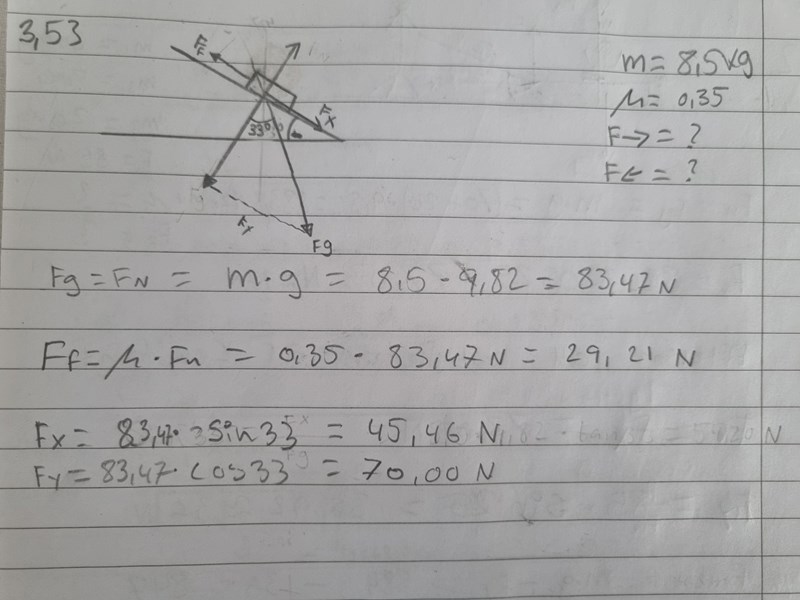 3,53
m = 8,5 kg
μ = 0,35
F→ = ?
F← = ?
FF
Fx
33°
Fy
Fg
Fg = FN = m·g = 8,5 · 9,82 = 83,47 N
Ff = μ · Fn = 0,35 · 83,47 N = 29,21 N
Fx = 83,47 · sin 33 = 45,46 N
Fy = 83,47 · cos 33 = 70,00 N